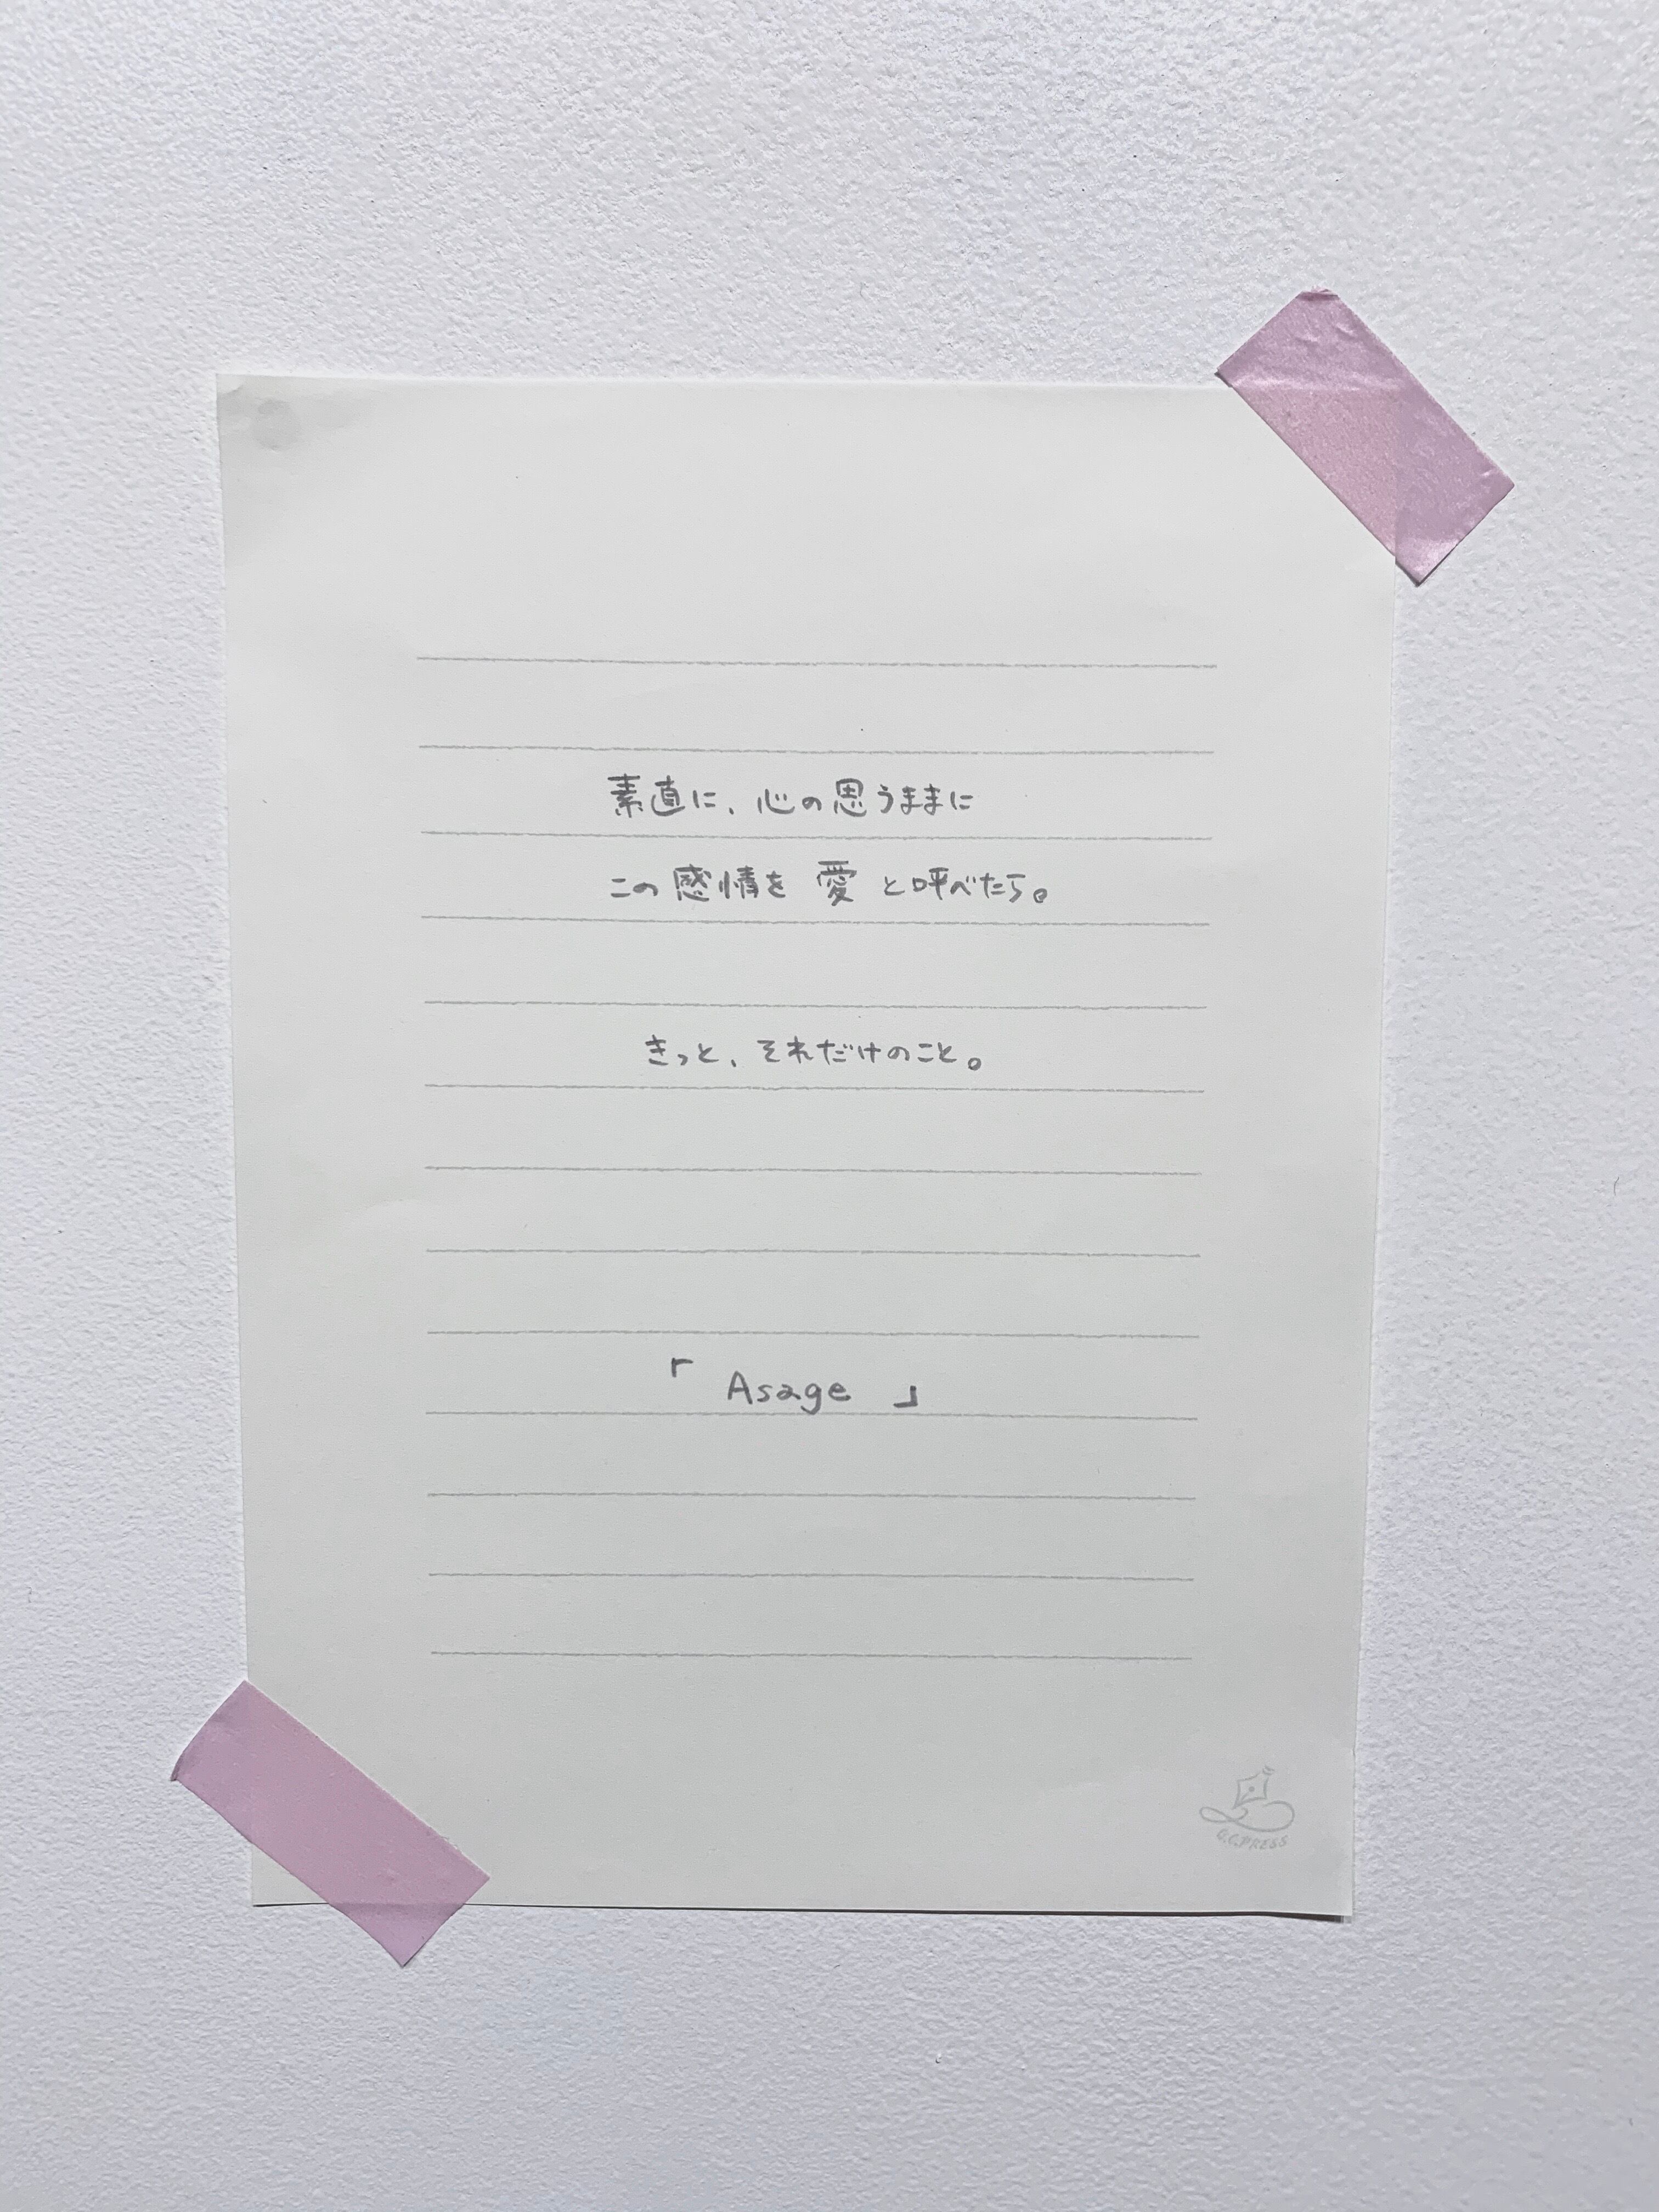 素直に、心の思うままに
この感情を 愛 と呼べたら。
きっと、それだけのこと。
「 Asage 」
G.C.PRESS